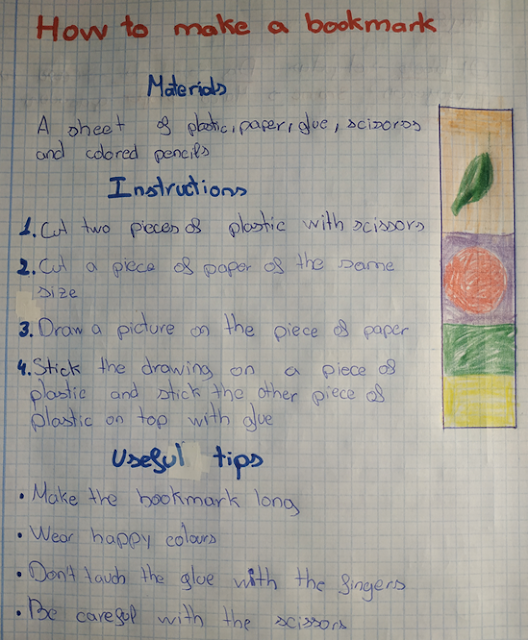 How to make a bookmark
Materials
A sheet of plastic, paper, glue, scissors
and colored pencils
Instructions
1. Cut two pieces of plastic with scissors
2. Cut a piece of paper of the same
size
3. Draw a picture on the piece of paper
4. Stick the drawing on a piece of
plastic and stick the other piece of
plastic on top with glue
Useful tips
• Make the bookmark long
• Wear happy colours
• Don't touch the glue with the fingers
• Be careful with the scissors